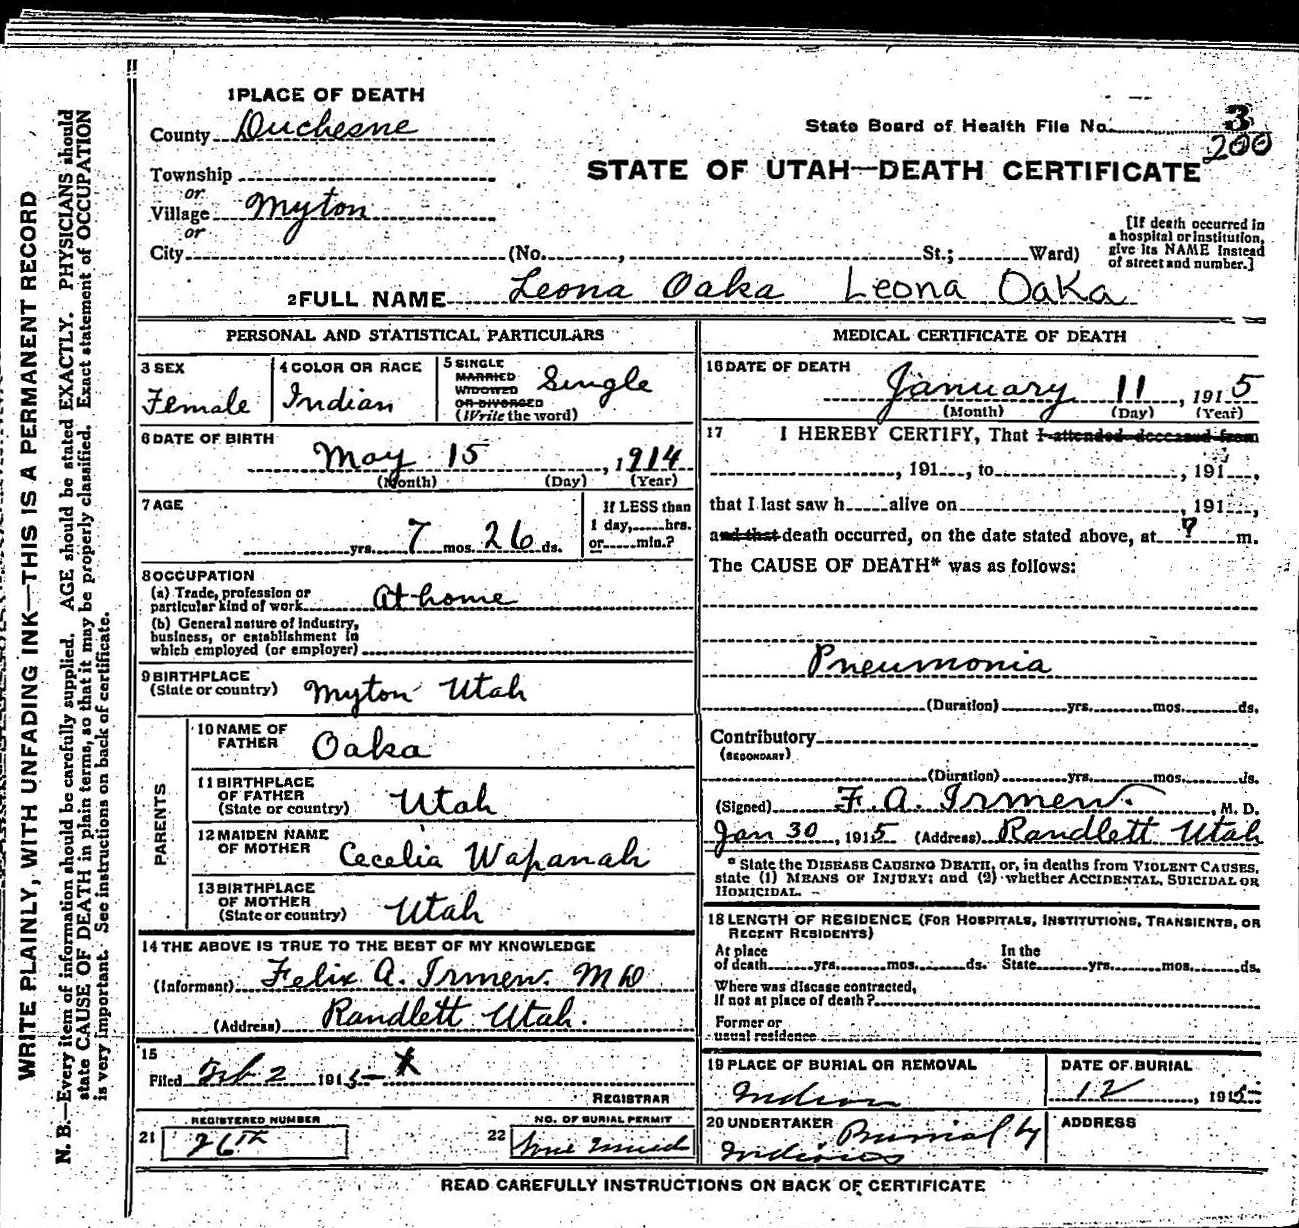 1 PLACE OF DEATH
County Duchesne
State Board of Health File No. 3
200
Township
or
Village Myton
or
City (No. , St.; Ward)
STATE OF UTAH—DEATH CERTIFICATE
[If death occurred in
a hospital or institution,
give its NAME instead
of street and number.]
2 FULL NAME Leona Oaka Leona Oaka
PERSONAL AND STATISTICAL PARTICULARS
3 SEX
Female
4 COLOR OR RACE
Indian
5 SINGLE
MARRIED
WIDOWED
OR DIVORCED
(Write the word)
Single
6 DATE OF BIRTH
May 15, 1914
(Month) (Day) (Year)
7 AGE
yrs. 7 mos. 26 ds.
If LESS than
1 day, hrs.
or min.?
8 OCCUPATION
(a) Trade, profession or
particular kind of work At home
(b) General nature of industry,
business, or establishment in
which employed (or employer)
9 BIRTHPLACE
(State or country) Myton Utah
PARENTS
10 NAME OF
FATHER Oaka
11 BIRTHPLACE
OF FATHER
(State or country) Utah
12 MAIDEN NAME
OF MOTHER Cecelia Wapanah
13 BIRTHPLACE
OF MOTHER
(State or country) Utah
14 THE ABOVE IS TRUE TO THE BEST OF MY KNOWLEDGE
(Informant) Felix A. Irmen. MD
(Address) Randlett Utah.
15
Filed Feb 2 1915
REGISTRAR
REGISTERED NUMBER
21 26th
NO. OF BURIAL PERMIT
22
MEDICAL CERTIFICATE OF DEATH
16 DATE OF DEATH
January 11, 1915
(Month) (Day) (Year)
17 I HEREBY CERTIFY, That I attended deceased from
, 191 , to , 191 ,
that I last saw h alive on , 191 ,
and that death occurred, on the date stated above, at ? m.
The CAUSE OF DEATH* was as follows:
Pneumonia
(Duration) yrs. mos. ds.
Contributory
(SECONDARY)
(Duration) yrs. mos. ds.
(Signed) F. A. Irmen. , M. D.
Jan 30, 1915 (Address) Randlett Utah
* State the DISEASE CAUSING DEATH, or, in deaths from VIOLENT CAUSES,
state (1) MEANS OF INJURY; and (2) whether ACCIDENTAL, SUICIDAL OR
HOMICIDAL.
18 LENGTH OF RESIDENCE (FOR HOSPITALS, INSTITUTIONS, TRANSIENTS, OR
RECENT RESIDENTS)
At place
of death yrs. mos. ds.
In the
State yrs. mos. ds.
Where was disease contracted,
If not at place of death?
Former or
usual residence
19 PLACE OF BURIAL OR REMOVAL
Indian
DATE OF BURIAL
12, 1915
20 UNDERTAKER Burial by
Indians
ADDRESS
READ CAREFULLY INSTRUCTIONS ON BACK OF CERTIFICATE
WRITE PLAINLY, WITH UNFADING INK—THIS IS A PERMANENT RECORD
N. B.—Every item of information should be carefully supplied. AGE should be stated EXACTLY. PHYSICIANS should
state CAUSE OF DEATH in plain terms, so that it may be properly classified. Exact statement of OCCUPATION
is very important. See instructions on back of certificate.